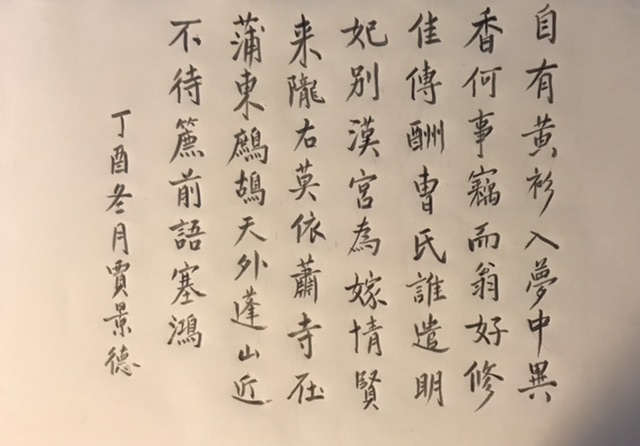 自有黃衫入夢中異
香何事竊而翁好修
佳傳酬曹氏誰遣明
妃別漢宮為嫁情賢
来隴右莫依蕭寺在
蒲東鷓鴣天外蓬山近
不待簾前語塞鴻
丁酉冬月賈景德